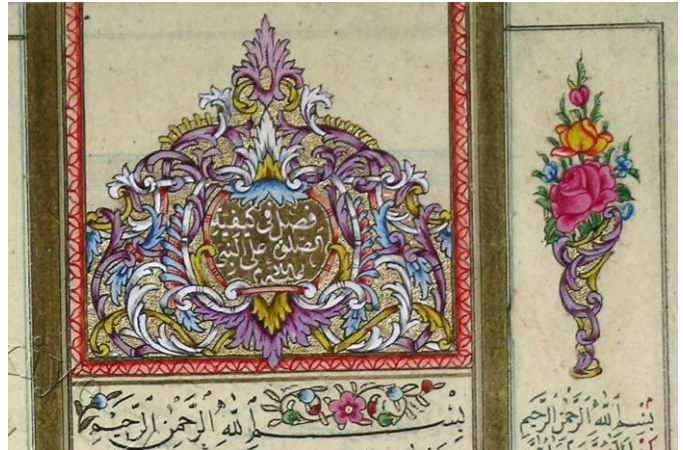 فصل في كيفية
الصلوة على النبي
بسم الله الرحمن الرحيم
بسم الله الرحمن الرحيم